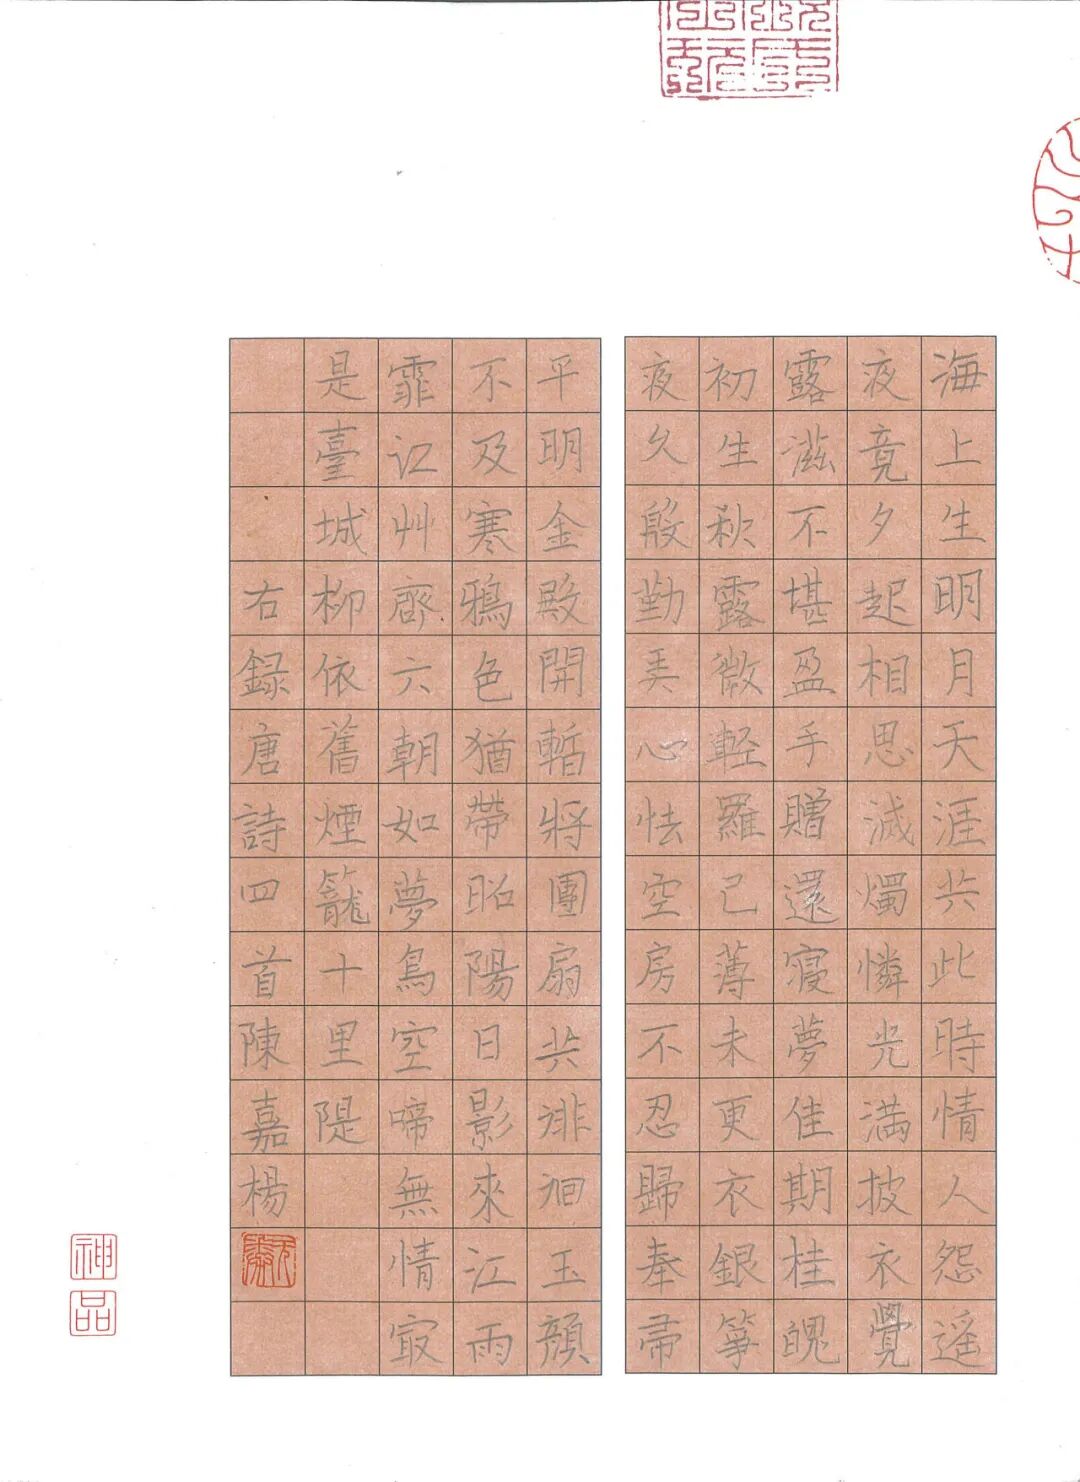 海上生明月天涯共此時情人怨遥
夜竟夕起相思滅燭憐光満披衣覺
露滋不堪盈手贈還寝夢佳期桂魄
初生秋露微輕羅已薄未更衣銀箏
夜久殷勤弄心怯空房不忍歸奉帚
平明金殿開暫將團扇共徘徊玉顔
不及寒鴉色猶帶昭陽日影來江雨
霏江艸齊六朝如夢鳥空啼無情㝡
是臺城柳依舊煙籠十里隄
右録唐詩四首陳嘉楊
神品